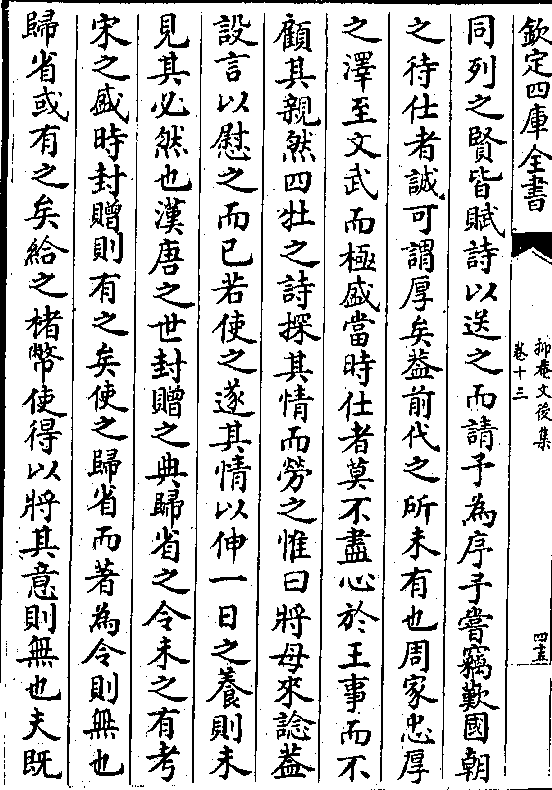 欽定四庫全書
抑菴文後集
卷十三
四五
同列之賢皆賦詩以送之而請予為序予嘗竊歎國朝
之待仕者誠可謂厚矣葢前代之所未有也周家忠厚
之澤至文武而極盛當時仕者莫不盡心於王事而不
顧其親然四牡之詩探其情而勞之惟曰將母來諗葢
設言以慰之而已若使之遂其情以伸一日之養則未
見其必然也漢唐之世封贈之典歸省之令未之有考
宋之盛時封贈則有之矣使之歸省而著為令則無也
歸省或有之矣給之楮幣使得以將其意則無也夫既